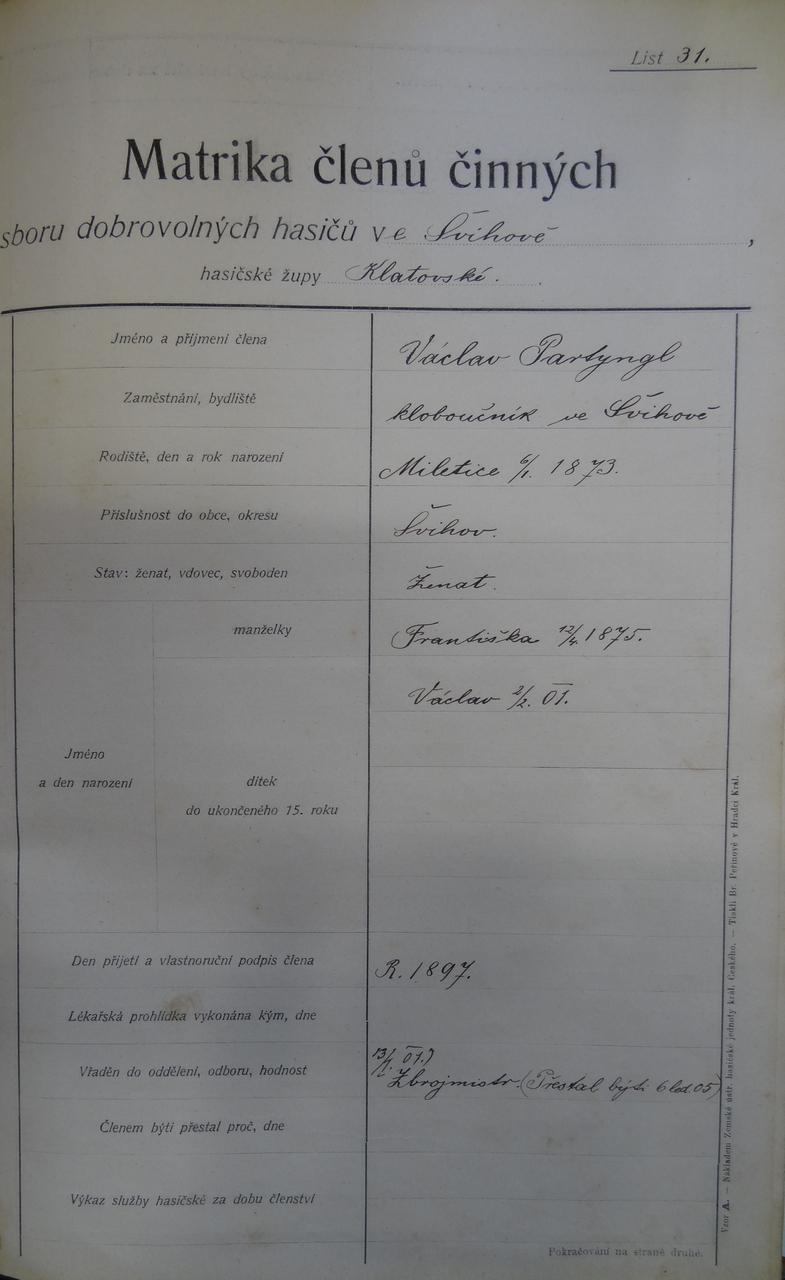 List 31.
Matrika členů činných
sboru dobrovolných hasičů ve Švihově,
hasičské župy Klatovské.
Jméno a příjmení člena Václav Partyngl
Zaměstnání, bydliště kloboučník ve Švihově
Rodiště, den a rok narození Miletice 6/1. 1873.
Příslušnost do obce, okresu Švihov.
Stav: ženat, vdovec, svoboden Ženat.
manželky Františka 12/4. 1875.
Václav 2/2. 01.
Jméno
a den narození dítek
do ukončeného 15. roku
Den přijetí a vlastnoruční podpis člena R. 1897.
Lékařská prohlídka vykonána kým, dne
13/1. 01.)
Vřaděn do oddělení, odboru, hodnost Zbrojmistr. (Přestal býti 6 led. 05)
Členem býti přestal proč, dne
Výkaz služby hasičské za dobu členství
Pokračování na straně druhé.
Vzor A. — Nákladem Zemské ústř. hasičské jednoty král. Českého. — Tiskli Br. Peřinové v Hradci Král.